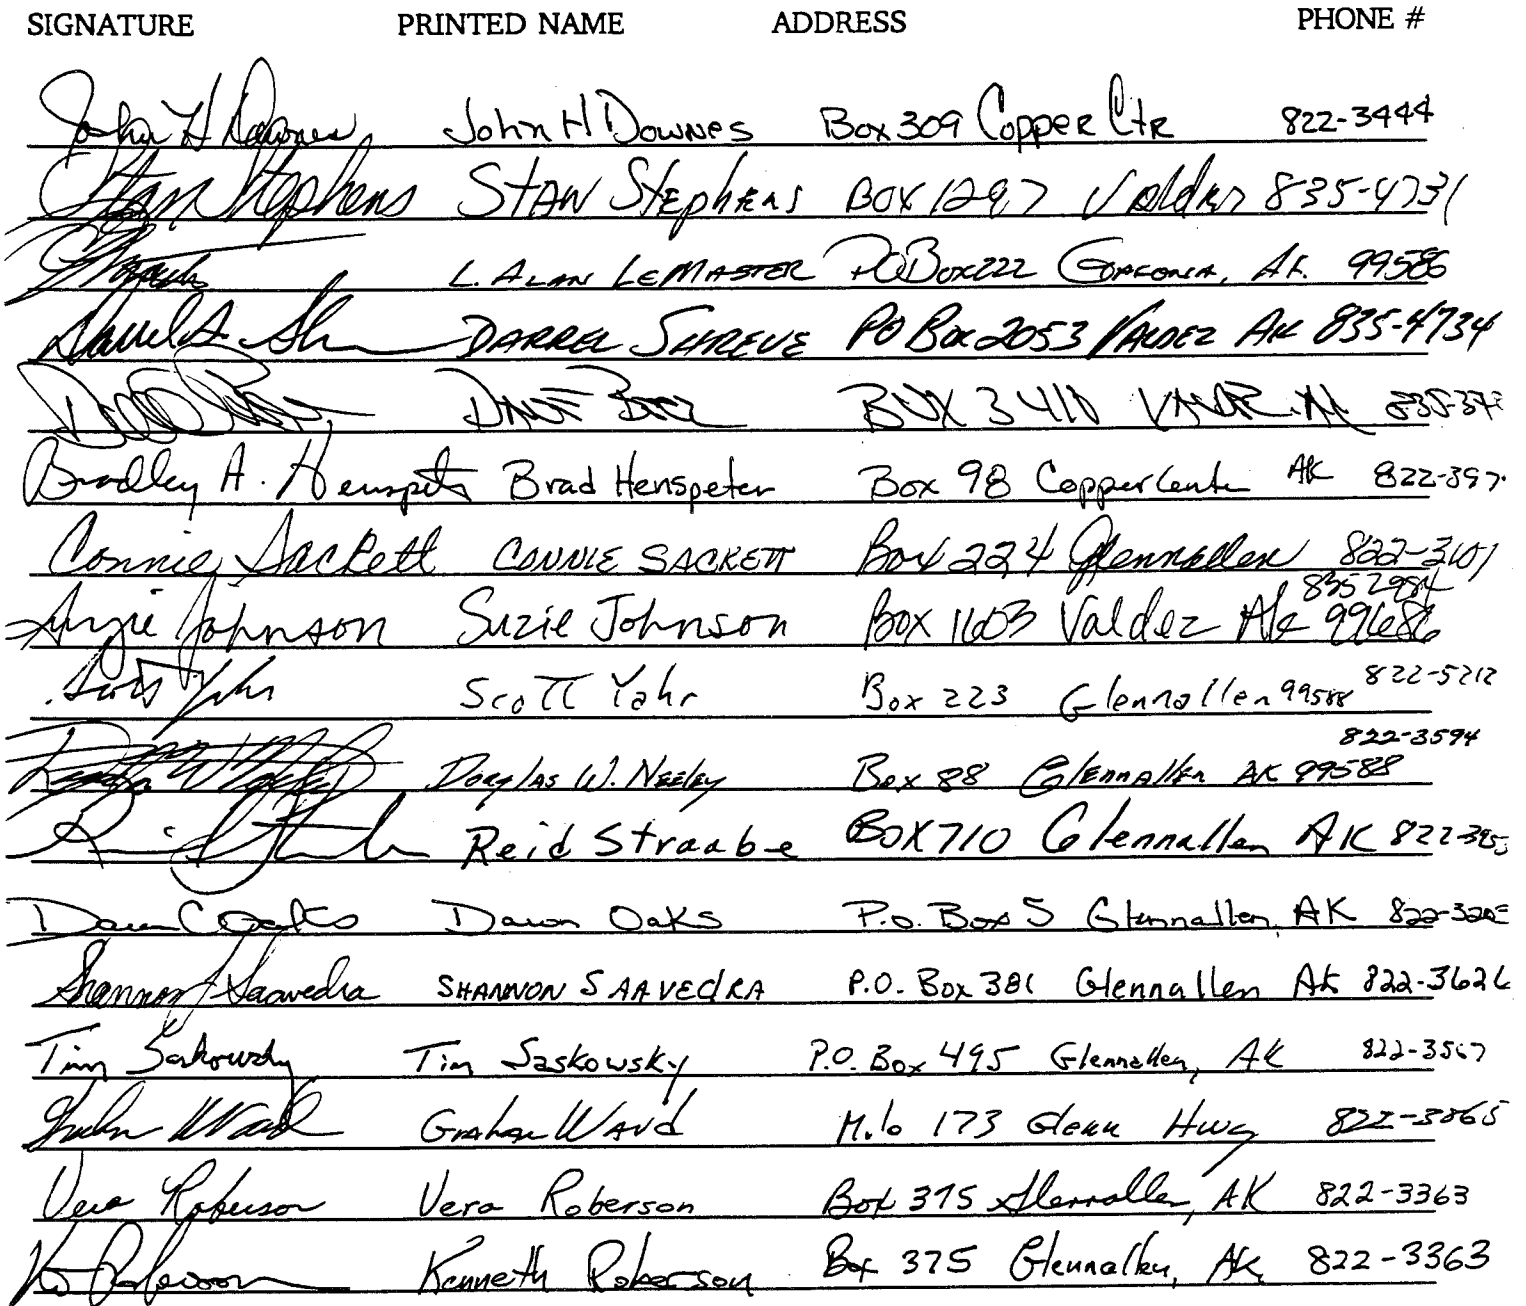 SIGNATURE PRINTED NAME ADDRESS PHONE #
John H Downes John H Downes Box 309 Copper Ctr 822-3444
Stan Stephens Stan Stephens Box 1297 Valdez 835-4731
L. Alan LeMaster PO Box 222 Gakona, AK. 99586
Darrel Shreve PO Box 2053 Valdez AK 835-4734
Box 3410
Bradley A. Henspeter Brad Henspeter Box 98 Copper Center AK 822-397
Connie Sackett CONNIE SACKETT Box 224 Glennallen 822-3101
835 2984
Suzie Johnson Suzie Johnson Box 1603 Valdez Ak 99686
822-5212
Scott Yahr Scott Yahr Box 223 Glennallen 99588
822-3594
Douglas W. Neeley Box 88 Glennallen AK 99588
Reid Straabe Box 710 Glennallen AK 822-395
Dawn Oaks P.O. Box 5 Glennallen, AK 822-320
Shannon J Saavedra SHANNON SAAVEdRA P.O. Box 381 Glennallen Ak 822-3626
Tim Saskowsky Tim Saskowsky P.O. Box 495 Glennallen, AK 822-3567
Graham Ward Graham Ward 173 Glenn Hwy 822-3865
Vera Roberson Vera Roberson Box 375 Glennallen, AK 822-3363
Ken Roberson Kenneth Roberson Box 375 Glennallen, Ak 822-3363